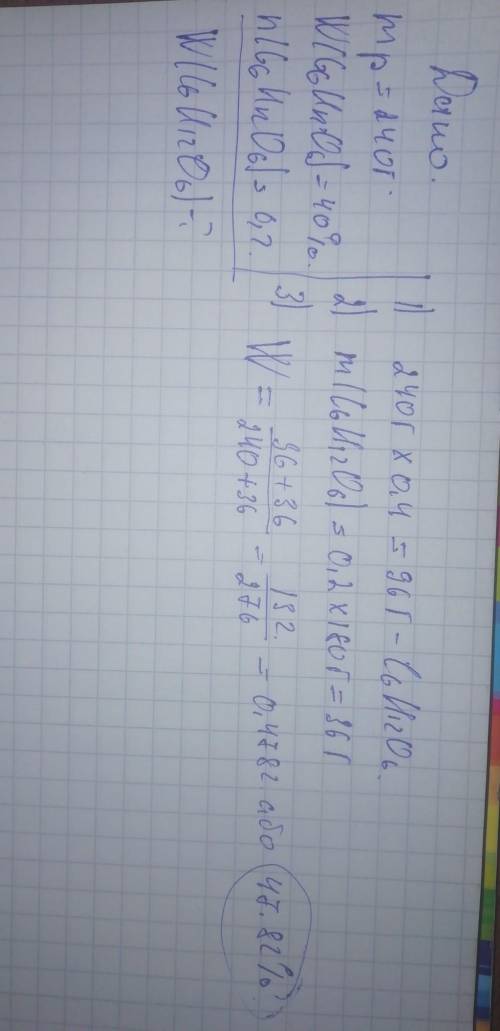 Дано.
mp = 240г.
W(C6H12O6) = 40%.
n(C6H12O6) = 0,2.
W(C6H12O6) - ?
1) 240г x 0,4 = 96г - C6H12O6.
2) m(C6H12O6) = 0,2 x 180г = 36г
3) W = 96+36/240+36 = 132/276 = 0,4782 або 47.82%.